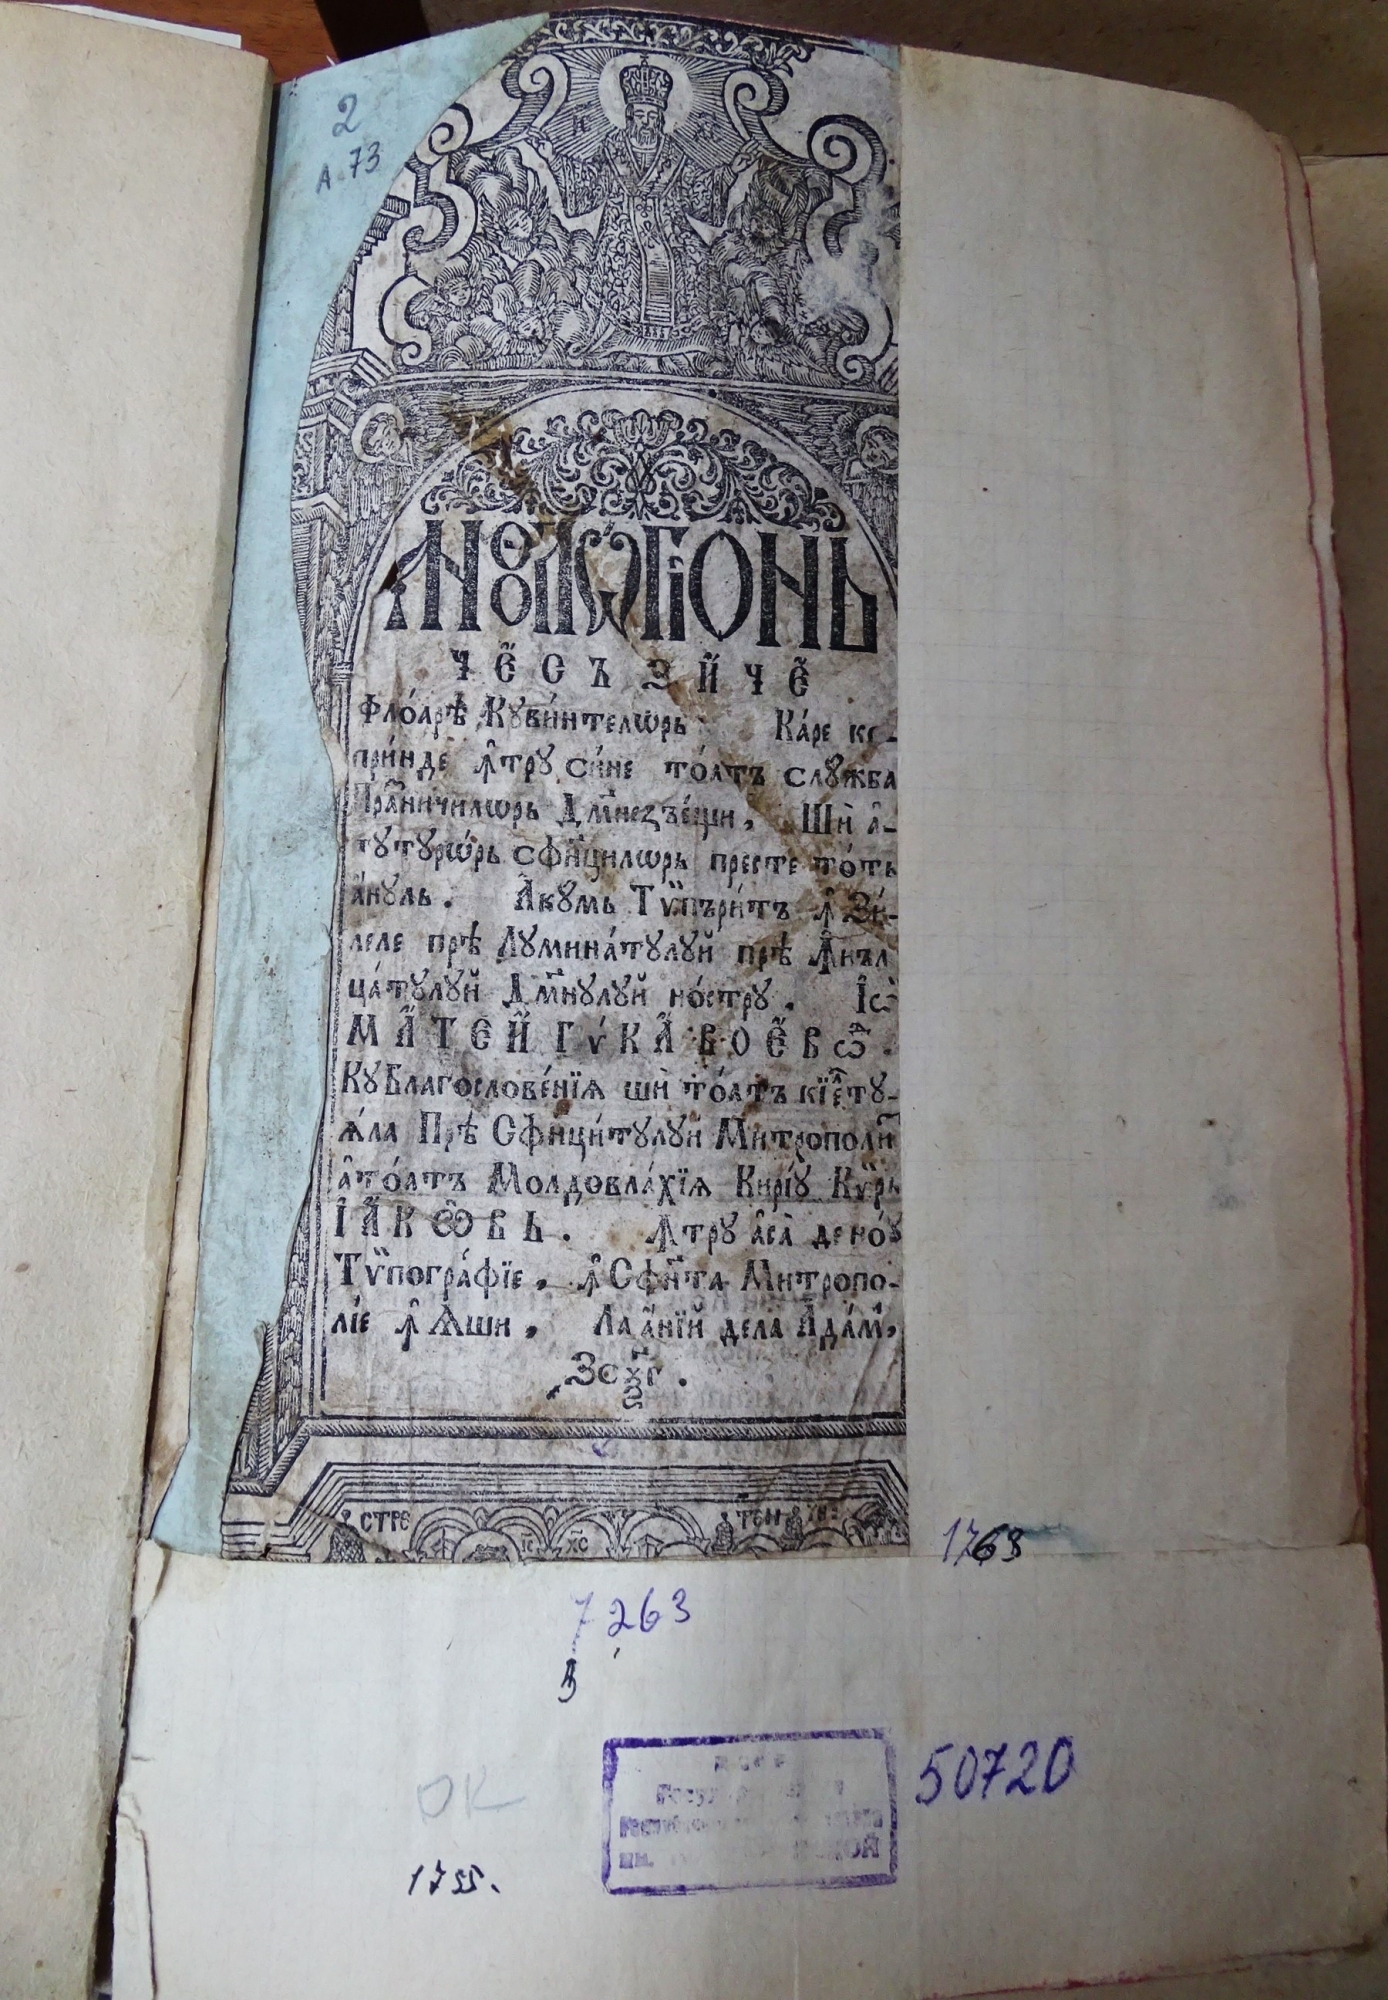 2
А.73
АНѲОЛѠГЇОНЬ
ЧЕ́СЪ ЗИ́ЧЕ
Флѡ́арѣ Кꙋви́нтелѡрь Ка́ре кꙋ-
при́нде ꙟ҆трꙋ си́не то́атъ слꙋжба
Пра́ꙁничилѡрь Дм҃незъе́щи, Ши а҆-
тꙋтꙋрѡ́рь сфи́нцилѡрь престе то́ть
а́нꙋль. А҆кꙋмь Тѷпъри́тъ ꙟ҆ Зи́-
леле прѣ Лꙋмина́тꙋлꙋй прѣ Ꙟ҆нъл
ца́тꙋлꙋй Дм҃нꙋлꙋй но́стрꙋ. І҆ѡ
МАТЕЙ ГѴКА ВОЕВѠД.
Кꙋ Благослове́нїѧ ши то́атъ кїелтꙋ-
ѧ́ла Прѣ Сфинци́тꙋлꙋй Митрополит
а҆ то́атъ Молдовла́хїѧ Кирїꙋ Кѷрь
ІАКѠВЬ. Ꙟ҆трꙋ а҆са̀ де но́ꙋ
Тѷпогра́фїе, ꙟ҆ Сфи́нта Митропо-
лі́е ꙟ҆ Ꙗши, Ла а́нїй дела А҆да́м,
ЗСѮГ.
СТРЕ ТЕН
ІС ХС
1763
7263
5
50720
ОК
1755.